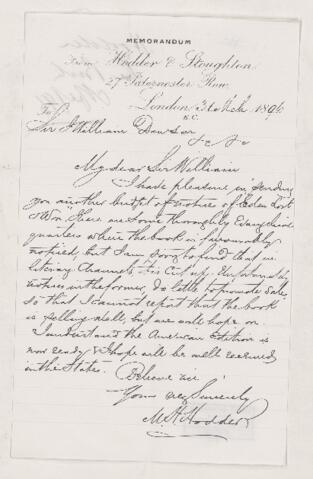 MEMORANDUM
From Hodder & Stoughton
27 Paternoster Row,
London 31 March 1896
E.C.
To
Sir J William Dawson
&c &c
My dear Sir William
I have pleasure in sending
you another budget of notices of "Eden Lost
& Won". There are some thoroughly Evangelical
quarters where the book is favourably
noticed, but I am sorry to find that in
literary channels it is cut up. Unfortunately
notices in the former, do little to promote sale,
so that I cannot report that the book
is selling well, but we will hope on.
I understand the American Edition is
now ready & I hope will be well received
in the States. Believe me
Yours very Sincerely
M. H. Hodder